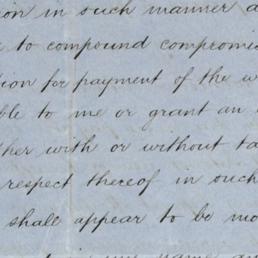 ion in such manner a
to compound compromis
tion for payment of the w
ble to me or grant an
ther with or without ta
respect thereof in such
shall appear to be mo